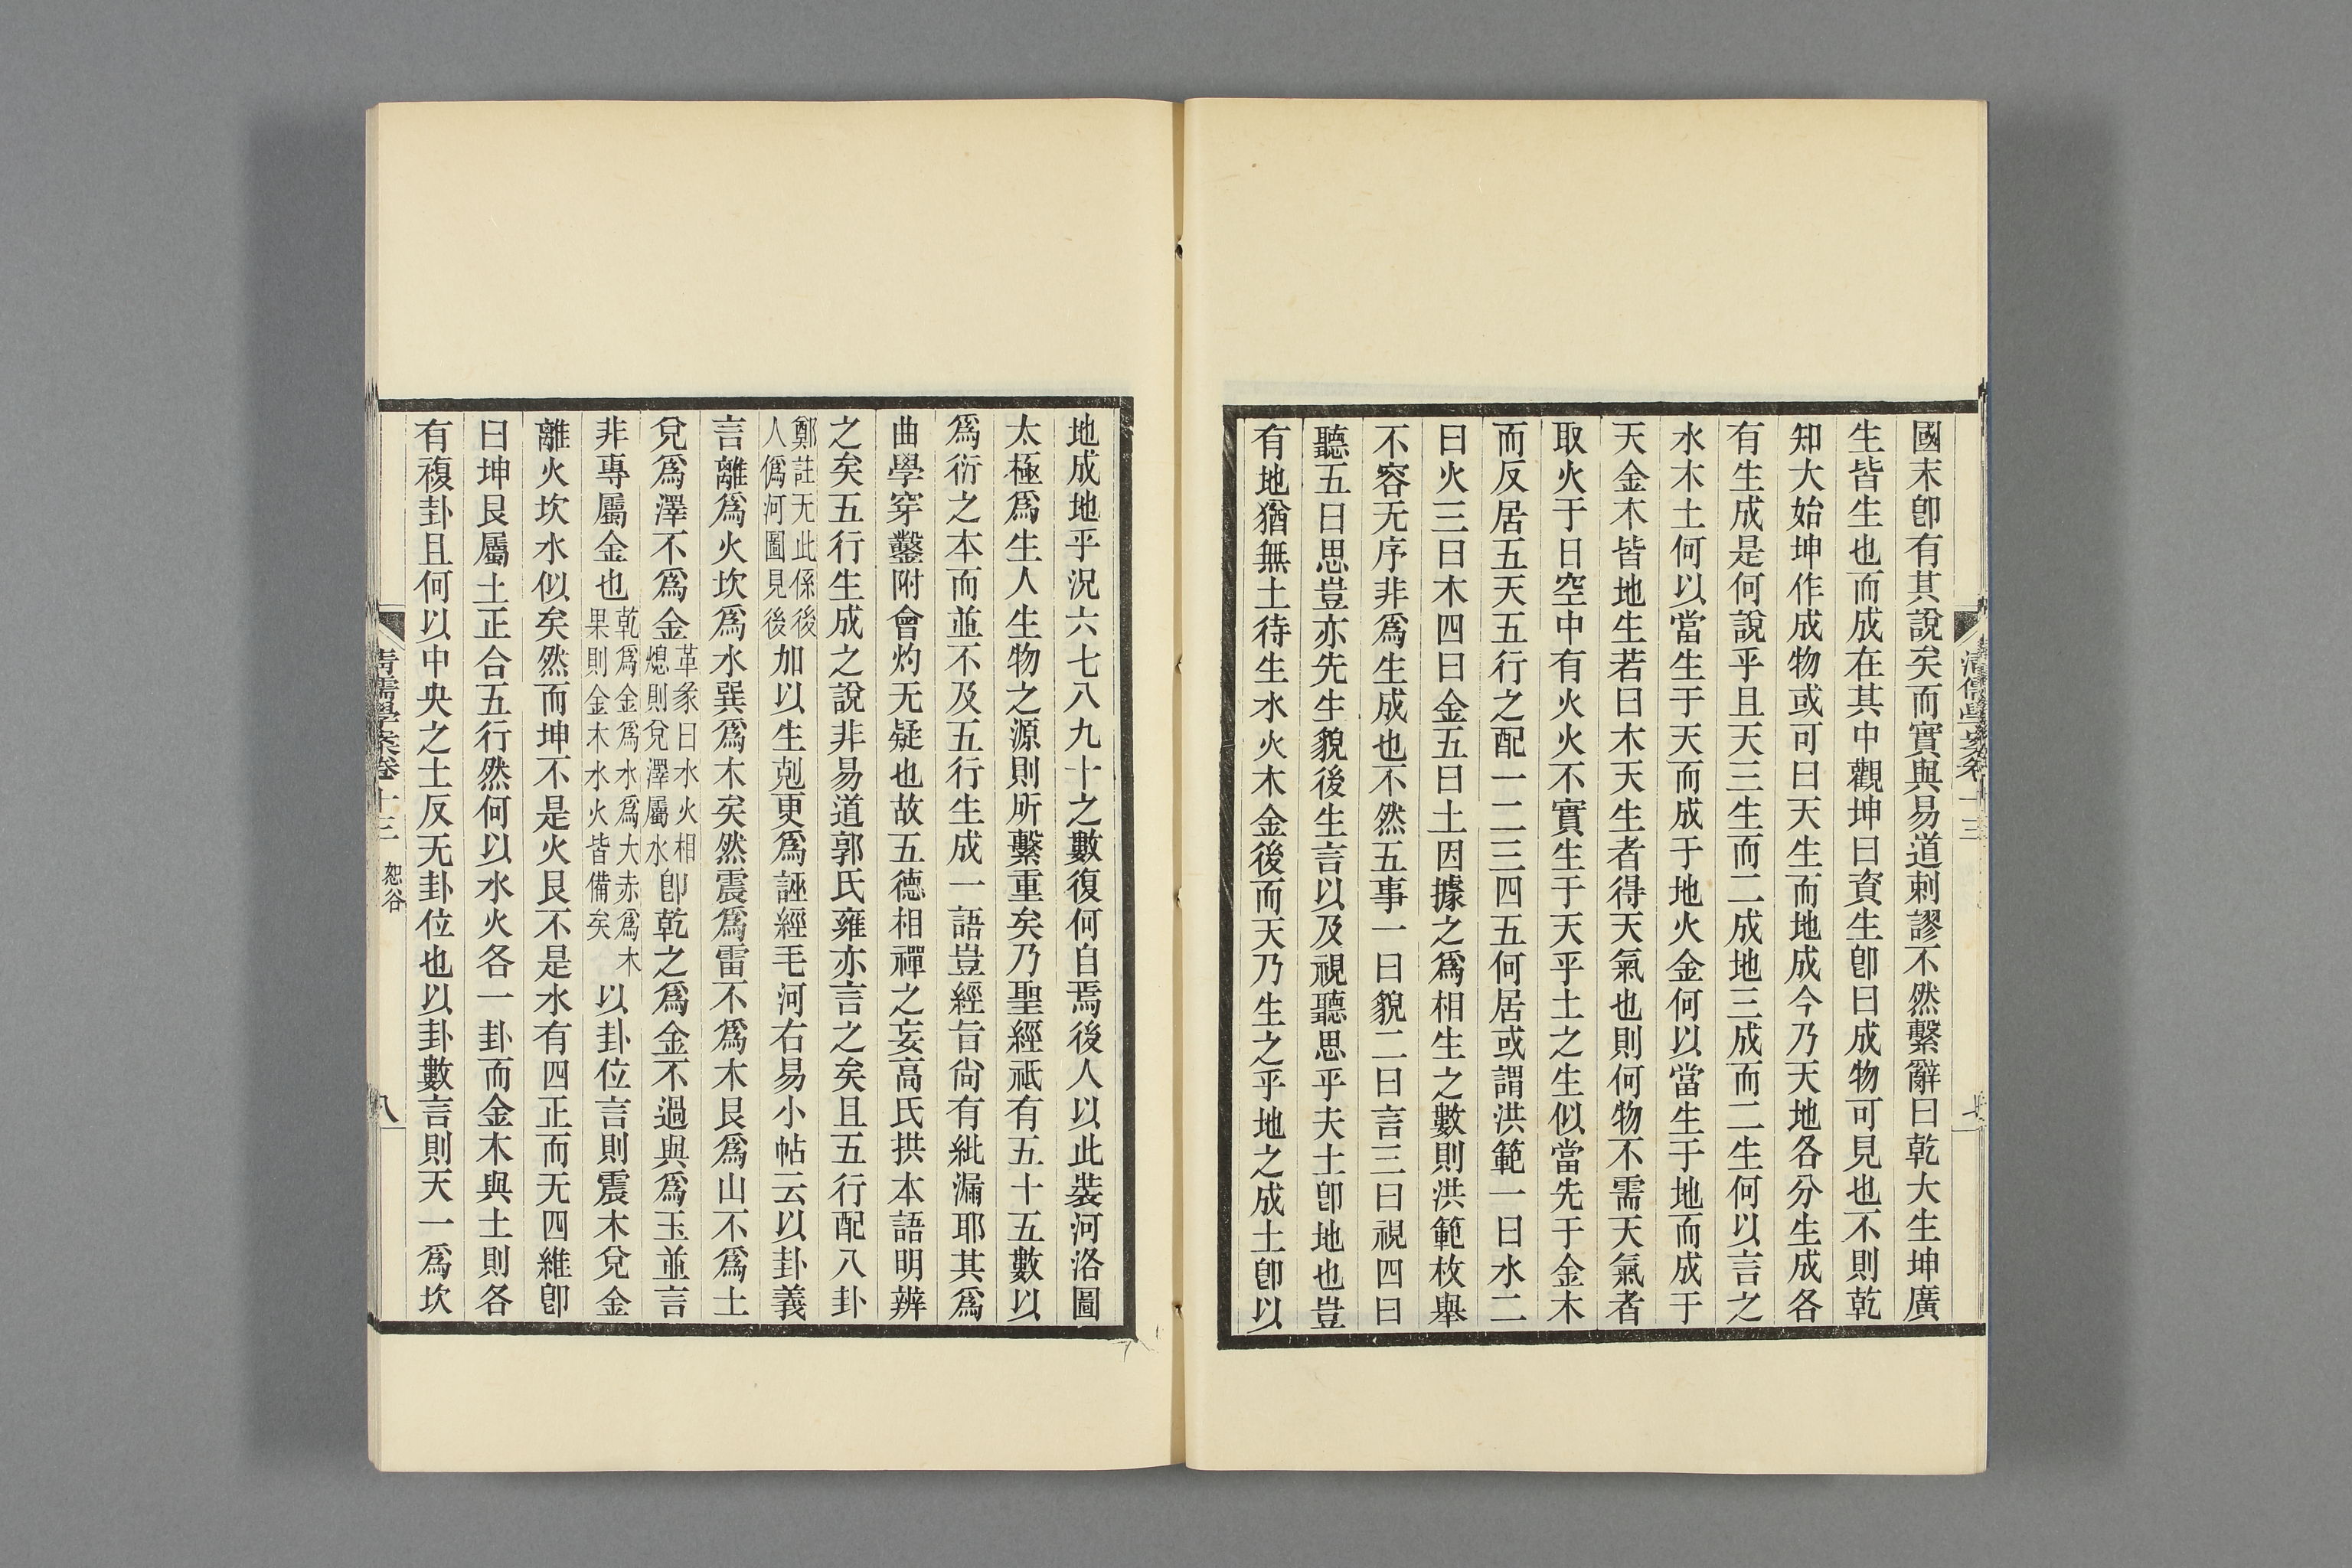 國末卽有其說矣而實與易道刺謬不然繫辭曰乾大生坤廣
生皆生也而成在其中觀坤曰資生卽曰成物可見也不則乾
知大始坤作成物或可曰天生而地成今乃天地各分生成各
有生成是何說乎且天三生而二成地三成而二生何以言之
水木土何以當生于天而成于地火金何以當生于地而成于
天金木皆地生若曰木天生者得天氣也則何物不需天氣者
取火于日空中有火火不實生于天乎土之生似當先于金木
而反居五天五行之配一二三四五何居或謂洪範一曰水二
曰火三曰木四曰金五曰土因據之爲相生之數則洪範枚舉
不容无序非爲生成也不然五事一曰貌二曰言三曰視四曰
聽五曰思豈亦先生貌後生言以及視聽思乎夫土卽地也豈
有地猶無土待生水火木金後而天乃生之乎地之成土卽以
清儒學案卷十三
地成地乎況六七八九十之數復何自焉後人以此裝河洛圖
太極爲生人生物之源則所繫重矣乃聖經祗有五十五數以
爲衍之本而並不及五行生成一語豈經旨尙有紕漏耶其爲
曲學穿鑿附會灼无疑也故五德相禪之妄高氏拱本語明辨
之矣五行生成之說非易道郭氏雍亦言之矣且五行配八卦
鄭註无此係後
人僞河圖見後
加以生剋更爲誣經毛河右易小帖云以卦義
言離爲火坎爲水巽爲木矣然震爲雷不爲木艮爲山不爲土
兌爲澤不爲金
革彖曰水火相
熄則兌澤屬水
卽乾之爲金不過與爲玉並言
非專屬金也
乾爲金爲水爲大赤爲木
果則金木水火皆備矣
以卦位言則震木兌金
離火坎水似矣然而坤不是火艮不是水有四正而无四維卽
曰坤艮屬土正合五行然何以水火各一卦而金木與土則各
有複卦且何以中央之土反无卦位也以卦數言則天一爲坎
清儒學案卷十三
恕谷
八